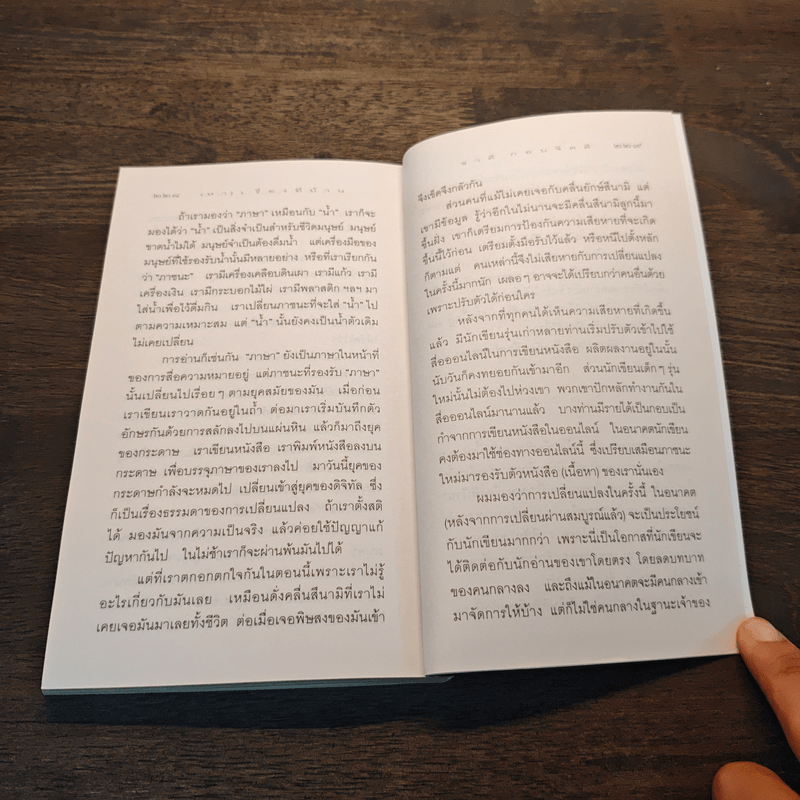 ถ้าเรามองว่า “ภาษา” เหมือนกับ “น้ำ” เราก็จะ
มองได้ว่า “น้ำ” เป็นสิ่งจำเป็นสำหรับชีวิตมนุษย์ มนุษย์
ขาดน้ำไม่ได้ มนุษย์จำเป็นต้องดื่มน้ำ แต่เครื่องมือของ
มนุษย์ที่ใช้รองรับน้ำนั้นมีหลายอย่าง หรือที่เราเรียกกัน
ว่า “ภาชนะ” เรามีเครื่องเคลือบดินเผา เรามีแก้ว เรามี
เครื่องเงิน เรามีกระบอกไม้ไผ่ เรามีพลาสติก ฯลฯ มา
ใส่น้ำเพื่อไว้ดื่มกิน เราเปลี่ยนภาชนะที่จะใส่ “น้ำ” ไป
ตามความเหมาะสม แต่ “น้ำ” นั้นยังคงเป็นน้ำตัวเดิม
ไม่เคยเปลี่ยน
การอ่านก็เช่นกัน “ภาษา” ยังเป็นภาษาในหน้าที่
ของการสื่อความหมายอยู่ แต่ภาชนะที่รองรับ “ภาษา”
นั้นเปลี่ยนไปเรื่อยๆ ตามยุคสมัยของมัน เมื่อก่อน
เราเขียนเราวาดกันอยู่ในถ้ำ ต่อมาเราเริ่มบันทึกตัว
อักษรกันด้วยการสลักลงไปบนแผ่นหิน แล้วก็มาถึงยุค
ของกระดาษ เราเขียนหนังสือ เราพิมพ์หนังสือลงบน
กระดาษ เพื่อบรรจุภาษาของเราลงไป มาวันนี้ยุคของ
กระดาษกำลังจะหมดไป เปลี่ยนเข้าสู่ยุคของดิจิทัล ซึ่ง
ก็เป็นเรื่องธรรมดาของการเปลี่ยนแปลง ถ้าเราตั้งสติ
ได้ มองมันจากความเป็นจริง แล้วค่อยใช้ปัญญาแก้
ปัญหากันไป ในไม่ช้าเราก็จะผ่านพ้นมันไปได้
แต่ที่เราตกอกตกใจกันในตอนนี้เพราะเราไม่รู้
อะไรเกี่ยวกับมันเลย เหมือนดั่งคลื่นสึนามิที่เราไม่
เคยเจอมันมาเลยทั้งชีวิต ต่อเมื่อเจอพิษสงของมันเข้า
ชาติ กอบจิตติ ๒๒๙
จึงเข็ดจึงกลัวกัน
ส่วนคนที่แม้ไม่เคยเจอกับคลื่นยักษ์สึนามิ แต่
เขามีข้อมูล รู้ว่าอีกไม่นานจะมีคลื่นสึนามิลูกนี้มา
ขึ้นฝั่ง เขาก็เตรียมการป้องกันความเสียหายที่จะเกิด
ขึ้นนี้ไว้ก่อน เตรียมตั้งมือรับไว้แล้ว หรือหนีไปตั้งหลัก
ก็ตามแต่ คนเหล่านี้จึงไม่เสียหายกับการเปลี่ยนแปลง
ในครั้งนี้มากนัก เผลอๆ อาจจะได้เปรียบกว่าคนอื่นด้วย
เพราะปรับตัวได้ก่อนใคร
หลังจากที่ทุกคนได้เห็นความเสียหายที่เกิดขึ้น
แล้ว มีนักเขียนรุ่นเก่าหลายท่านเริ่มปรับตัวเข้าไปใช้
สื่อออนไลน์ในการเขียนหนังสือ ผลิตผลงานอยู่ในนั้น
นับวันก็คงทยอยกันเข้ามาอีก ส่วนนักเขียนเด็กๆ รุ่น
ใหม่นั้นไม่ต้องไปห่วงเขา พวกเขาปักหลักทำงานกันใน
สื่อออนไลน์มานานแล้ว บางท่านมีรายได้เป็นกอบเป็น
กำจากการเขียนหนังสือในออนไลน์ ในอนาคตนักเขียน
คงต้องมาใช้ช่องทางออนไลน์นี้ ซึ่งเปรียบเสมือนภาชนะ
ใหม่มารองรับตัวหนังสือ (เนื้อหา) ของเรานั่นเอง
ผมมองว่าการเปลี่ยนแปลงในครั้งนี้ ในอนาคต
(หลังจากการเปลี่ยนผ่านสมบูรณ์แล้ว) จะเป็นประโยชน์
กับนักเขียนมากกว่า เพราะนี่เป็นโอกาสที่นักเขียนจะ
ได้ติดต่อกับนักอ่านของเขาโดยตรง โดยลดบทบาท
ของคนกลางลง และถึงแม้ในอนาคตจะมีคนกลางเข้า
มาจัดการให้บ้าง แต่ก็ไม่ใช่คนกลางในฐานะเจ้าของ